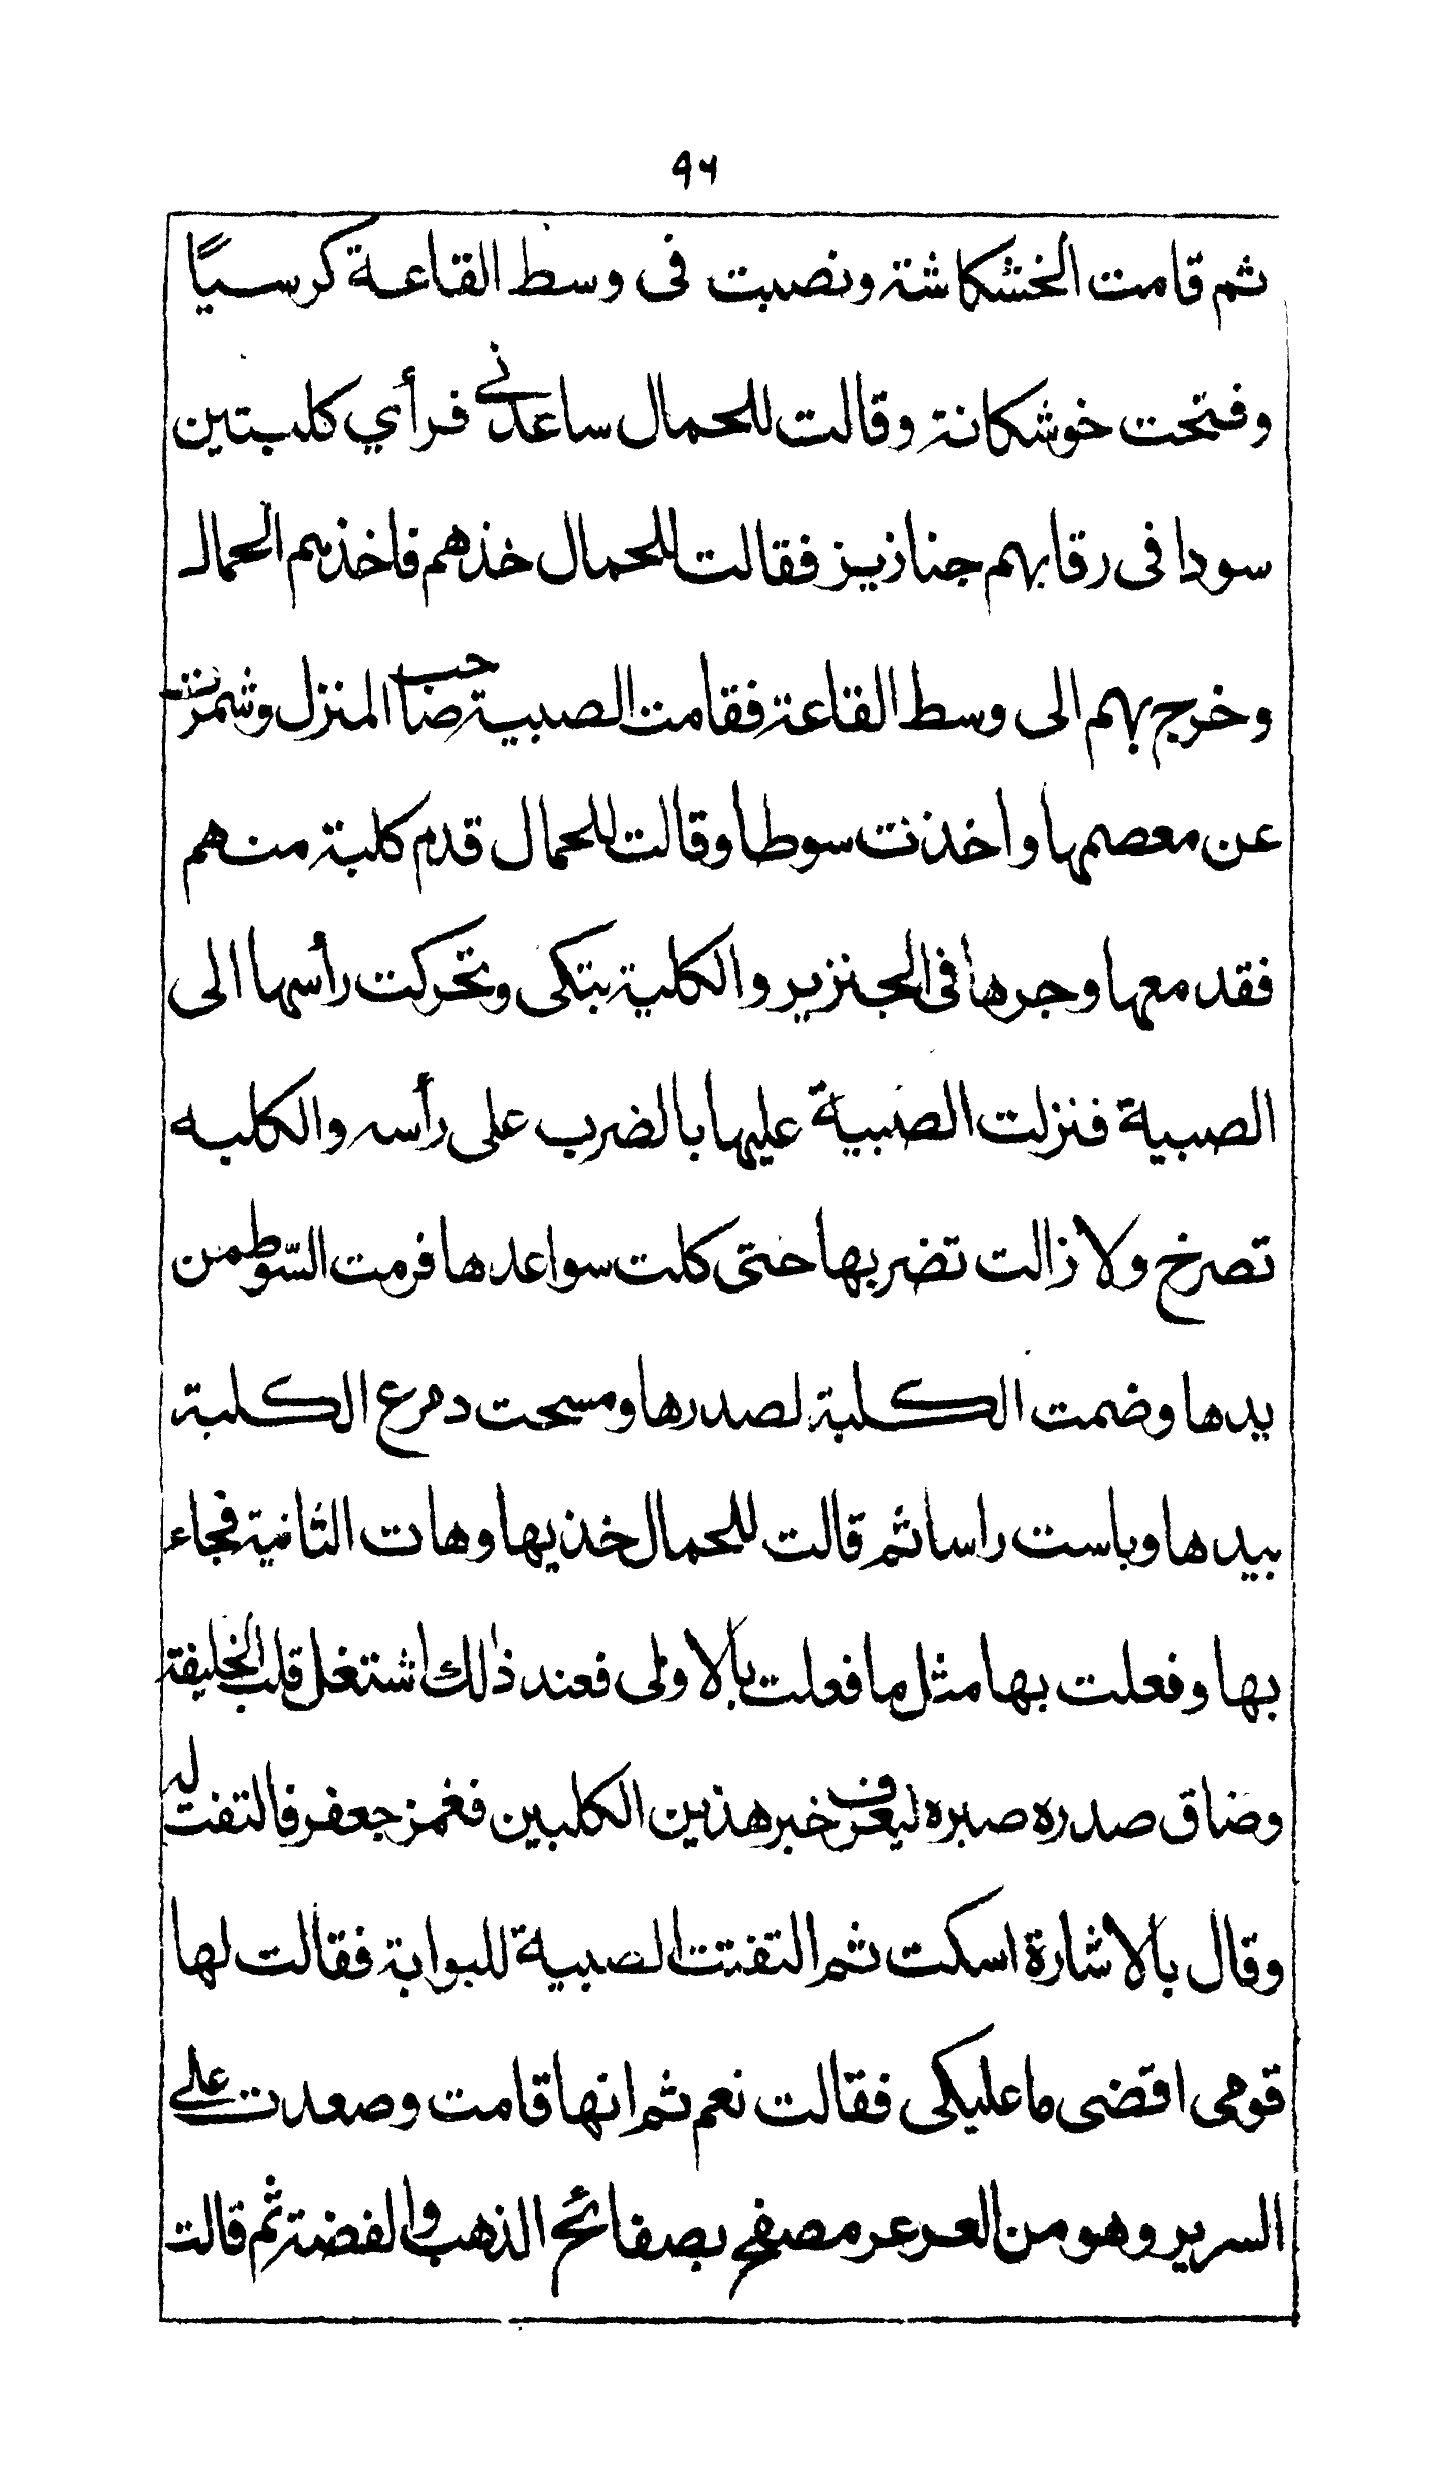 ٩٦
ثم قامت الخشكاشة ونصبت فى وسط القاعة كرسيًا
وفتحت خوشكانة وقالت للحمال ساعدنى فرأي كلبتين
سودا فى رقابهم جنازيز فقالت للحمال خذهم فاخذهم الحمال
وخرج بهم الى وسط القاعة فقامت الصبية صاحب المنزل وشمرت
عن معصمها واخذت سوطا وقالت للحمال قدم كلبة منهم
فقد معها وجرها فى الجنزير والكلبة بتكى وتحركت رأسها الى
الصبية فنزلت الصبية عليها بالضرب على رأسه والكلبه
تصرخ ولا زالت تضربها حتى كلت سواعدها فرمت السّوط من
يدها وضمت الكلبة لصدرها ومسحت دمرع الكلبة
بيدها وباست راسا ثم قالت للحمال خذيها وهات الثانية فجاء
بها وفعلت بها مثل ما فعلت بالاولى فعند ذالك اشتغل قلب الخليفة
وضاق صدره صبره ليعرف خبر هذين الكلبين فغمز جعفر فالتفت له
وقال بالاشارة اسكت ثم التفتت الصبية للبوابة فقالت لها
قومى اقضى ما عليكى فقالت نعم ثم انها قامت وصعدت على
السرير وهو من العرعر مصفح بصفائح الذهب والفضة ثم قالت